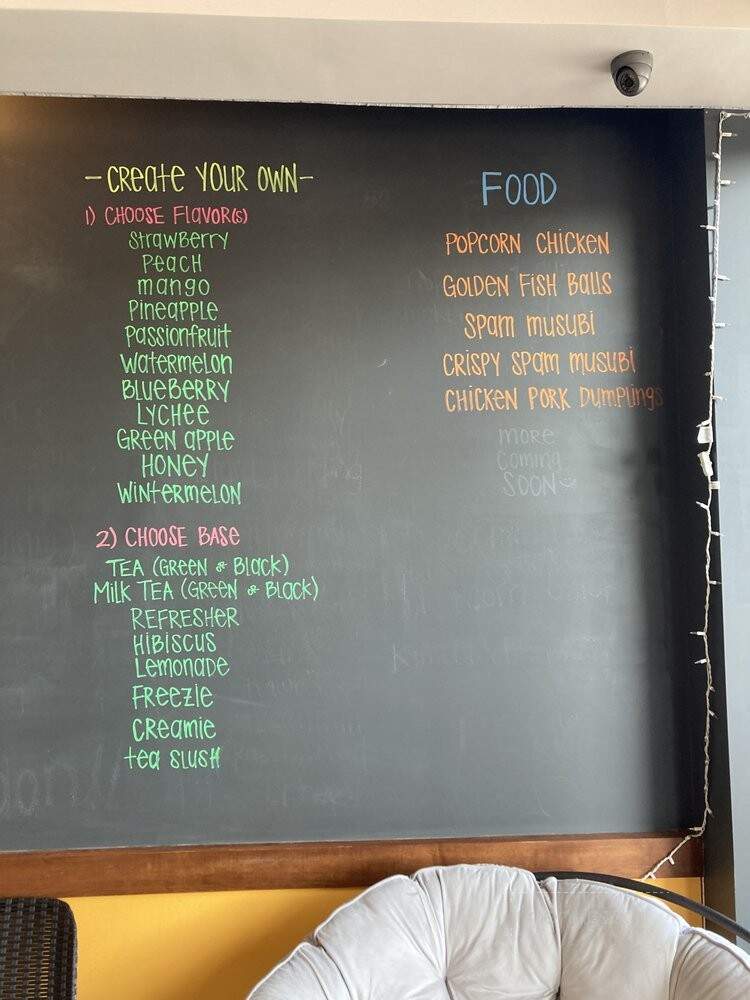 -CREATE YOUR OWN-
1) CHOOSE FLAVOR(S)
STRAWBERRY
PEACH
MANGO
PINEAPPLE
PASSIONFRUIT
WATERMELON
BLUEBERRY
LYCHEE
GREEN APPLE
HONEY
WINTERMELON
2) CHOOSE BASE
TEA (GREEN or BLACK)
MILK TEA (GREEN or BLACK)
REFRESHER
HIBISCUS
LEMONADE
FREEZIE
CREAMIE
TEA SLUSH
FOOD
POPCORN CHICKEN
GOLDEN FISH BALLS
SPAM MUSUBI
CRISPY SPAM MUSUBI
CHICKEN PORK DUMPLINGS
MORE
COMING
SOON